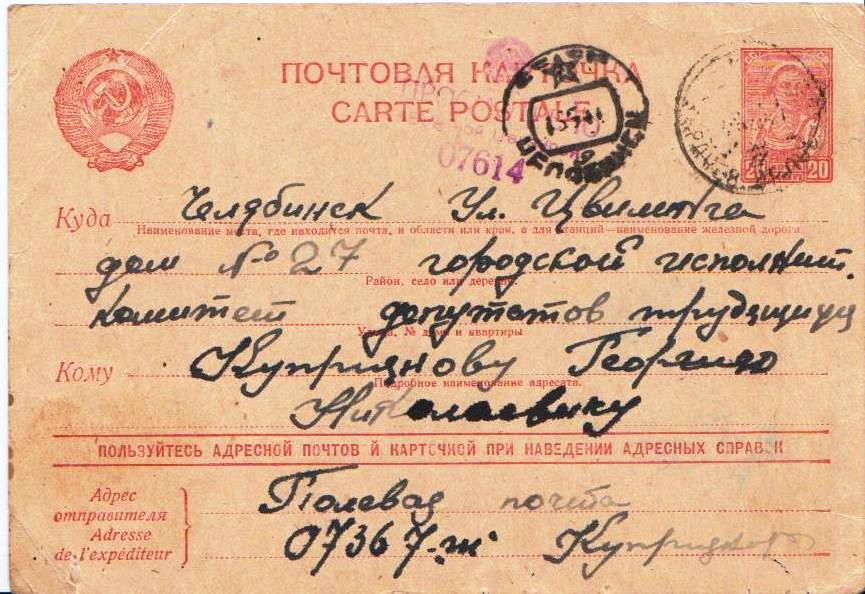 ПОЧТОВАЯ КАРТОЧКА
CARTE POSTALE
07614
ЧЕЛЯБИНСК
20 20
Куда Челябинск Ул. Цвилинга
Наименование места, где находится почта, и области или края, а для станций—наименование железной дороги
дом № 27 городской исполнит.
Район, село или деревня
комитет депутатов трудящихся
Улица, № дома и квартиры
Кому Куприянову Георгию
Подробное наименование адресата.
Николаевичу
ПОЛЬЗУЙТЕСЬ АДРЕСНОЙ ПОЧТОВ Й КАРТОЧКОЙ ПРИ НАВЕДЕНИИ АДРЕСНЫХ СПРАВОК
Адрес отправителя
Adresse de l'expéditeur
Полевая почта
07367-ж Куприянова